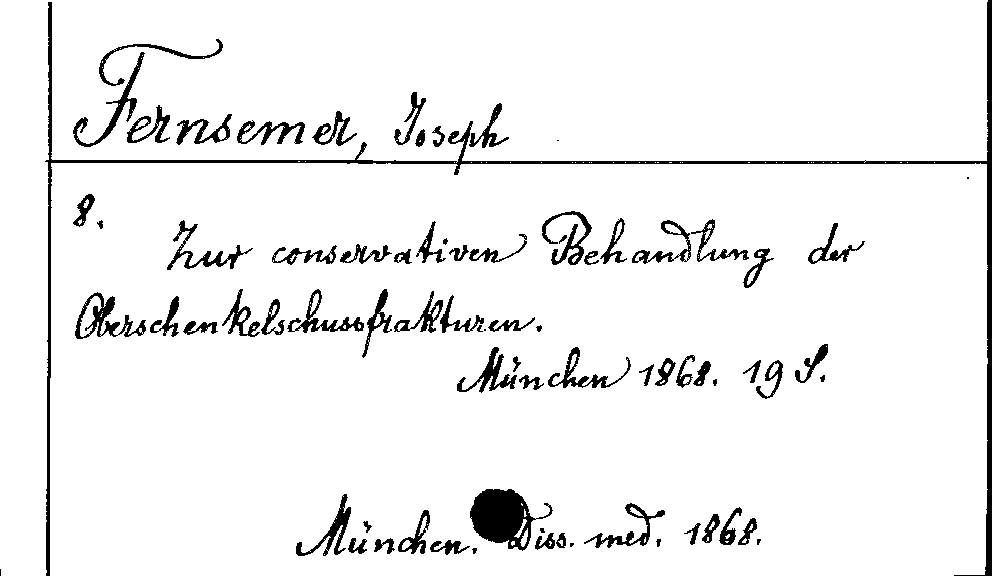 Fernsemer, Joseph
8.
Zur conservativen Behandlung der
Oberschenkelschussfrakturen.
München 1868. 19 S.
München. Diss. med. 1868.